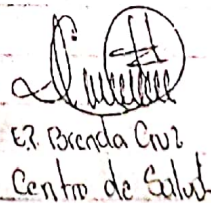 E.P. Brenda Cruz
Centro de Salud